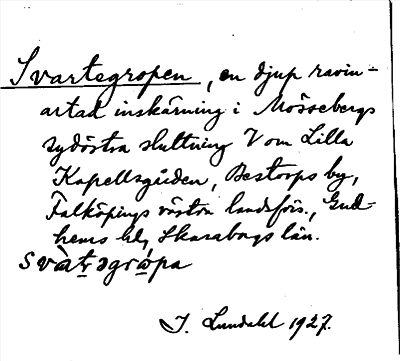 Svartegropen, en djup ravin-
artad inskärning i Mössebergs
sydöstra sluttning V om Lilla
Kapellsgården, Bestorps by,
Falköpings västra landsförs., Gud-
hems hd, Skaraborgs län.
svàt̲əgrɷ̀pa
J. Lundahl 1927.